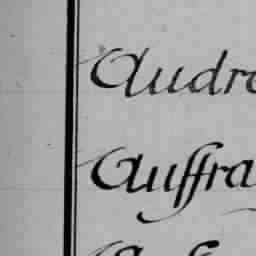 Audro
Auffra